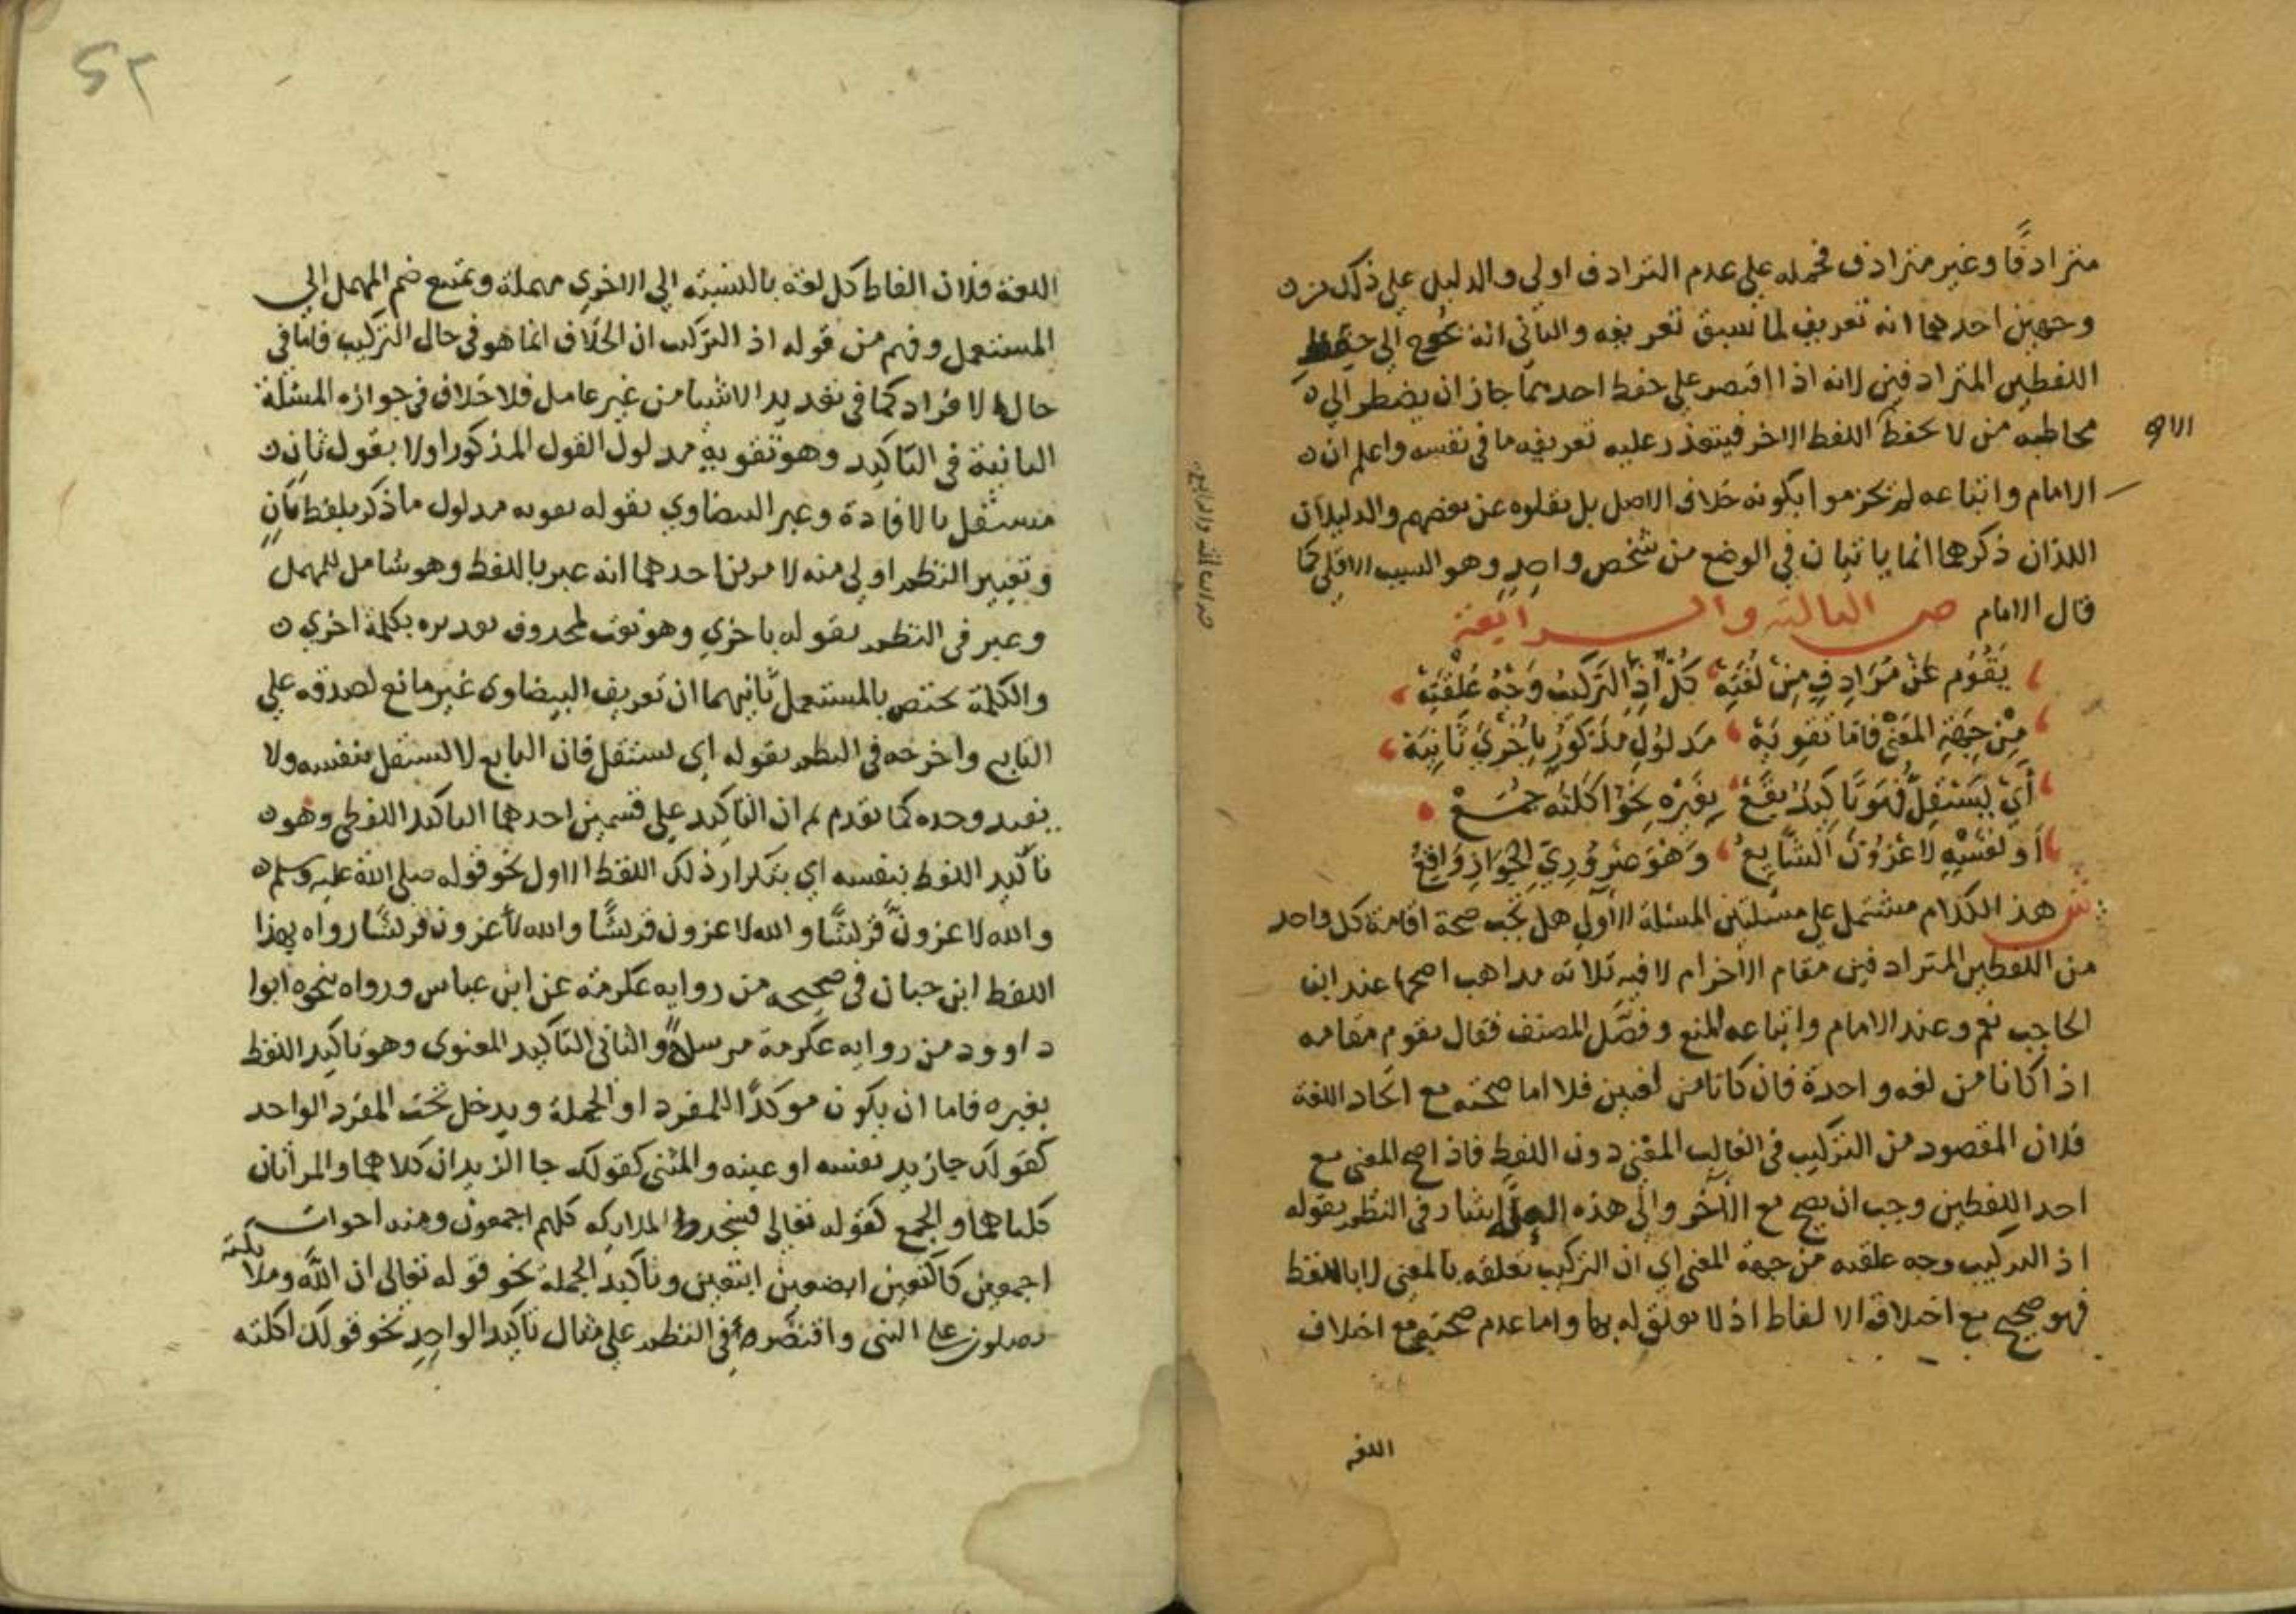 مترادفًا وغير مترادف فحمله على عدم الترادف اولى والدليل على ذلك من
وجهين احدهما انه تعريف لما سبق تعريفه والثانى انه يحوج الى حفظ
اللفظين المترادفين لانه اذا اقتصر على حفظ احدهما جاز ان يضطر الى
مخاطبه من لا يحفظ اللفظ الاخر فيتعذر عليه تعريفه ما فى نفسه واعلم ان
الامام واتباعه لم يجزموا بكونه خلاف الاصل بل نقلوه عن بعضهم والدليلان
اللذان ذكرهما انما ياتيان في الوضع من شخص واحدٍ وهو السبب الاقلي كما
قال الامام ص الثالثة والرابعة
يَقُوُم عَنْ مُرَادِفٍ مِنْ لُغَتِهْ كُلٌّ اذِ التركيبُ وَجْهُ عُلْقَتِهْ
مِنْ جِهَةِ المَعْنَى فاما تقويَهْ مَدلوُلِ مَذكورٍ باُخْرَى ثانِيَهْ
أَيْ يَسْتَقِلُّ فهو تاكيدٌ يقَعْ بِغَيْرِهِ نَحْوُ اَكَلْتُه جُمَعْ
أو نفسِهِ لاغزُوَنَّ الشَّايعُ وَهْوَ ضَرُورِيُّ الجَوَازِ وَاقِعُ
ش هذا الكلام مشتمل على مسئلتين المسئلة الأولى هل تجب صحة اقامة كل واحد
من اللفظين المترادفين مقام الاخر ام لا فيه ثلاثه مذاهب اصحها عند ابن
الحاجب نعم وعند الامام واتباعه المنع وفصَّل المصنف فقال يقوم مقامه
اذا كانا من لغه واحدة فان كانا من لغتين فلا اما صحته مع اتحاد اللغة
فلان المقصود من التركيب فى الغالب المعنى دون اللفظ فاذا صح المعنى مع
احد اللفظين وجب ان يصح مع الآخر والى هذه العلة اشار فى النظم بقوله
اذ التركيب وجه علقته من جهة المعنى اي ان التركيب تعلقه بالمعنى لا باللفظ
فهو صحيح مع اختلاف الالفاظ اذ لا تعلق له بها واما عدم صحته مع اختلاف
اللغه
اللغة فلان الفاظ كل لغة بالنسبة الى الاخرى مهملة ويمتنع ضم المهمل الى
المستعمل وفهم من قوله اذ التركيب ان الخلاف انما هو فى حال التركيب فاما في
حال الافراد كما فى تعديد الاشيا من غير عامل فلا خلاف فى جوازه المسئلة
الثانية فى التاكيد وهو تقوية مدلول القول المذكور اولا بقول ثان
مستقل بالافادة وعبر البيضاوي بقوله تقويه مدلول ما ذكر بلفظ ثانٍ
وتعبير النظم اولى منه لامرين احدهما انه عبر باللفظ وهو شامل للمهمل
وعبر فى النظم بقوله باخرى وهو نعت لمحذوف تقديره بكلمة اخرى
والكلمة تختص بالمستعمل ثانيهما ان تعريف البيضاوى غير مانع لصدقه على
التابع واخرجه فى النظم بقوله اى يستقل فان التابع لا يستقل بنفسه ولا
يفيد وحده كما تقدم ثم ان التاكيد على قسمين احدهما التاكيد اللفظى وهو
تأكيد اللفظ بنفسه اي بتكرار ذلك اللفظ الاول نحو قوله صلى الله عليه وسلم
والله لاغزونَّ قريشًا والله لاغزون قريشًا والله لأغزون قريشًا رواه بهذا
اللفظ ابن حبان فى صحيحه من روايه عكرمة عن ابن عباس ورواه بنحوه ابوا
داوود من روايه عكرمة مرسلا والثانى التاكيد المعنوى وهو تاكيد اللفظ
بغيره فاما ان يكون موكدًا للمفرد او الجملة ويدخل تحت المفرد الواحد
كقولك جا زيد نفسه او عينه والمثنى كقولك جا الزيدان كلاهما والمرأتان
كلتاهما والجمع كقوله تعالى فسجد الملايكه كلهم اجمعون وهذه اخوات
اجمعين كاكتعين ابصعين ابتعين وتأكيد الجملة نحو قوله تعالى ان اللَّه وملائكته
يصلون على النبى واقتصر فى النظم على مثال تاكيد الواحِدِ نحو قولك اكلته